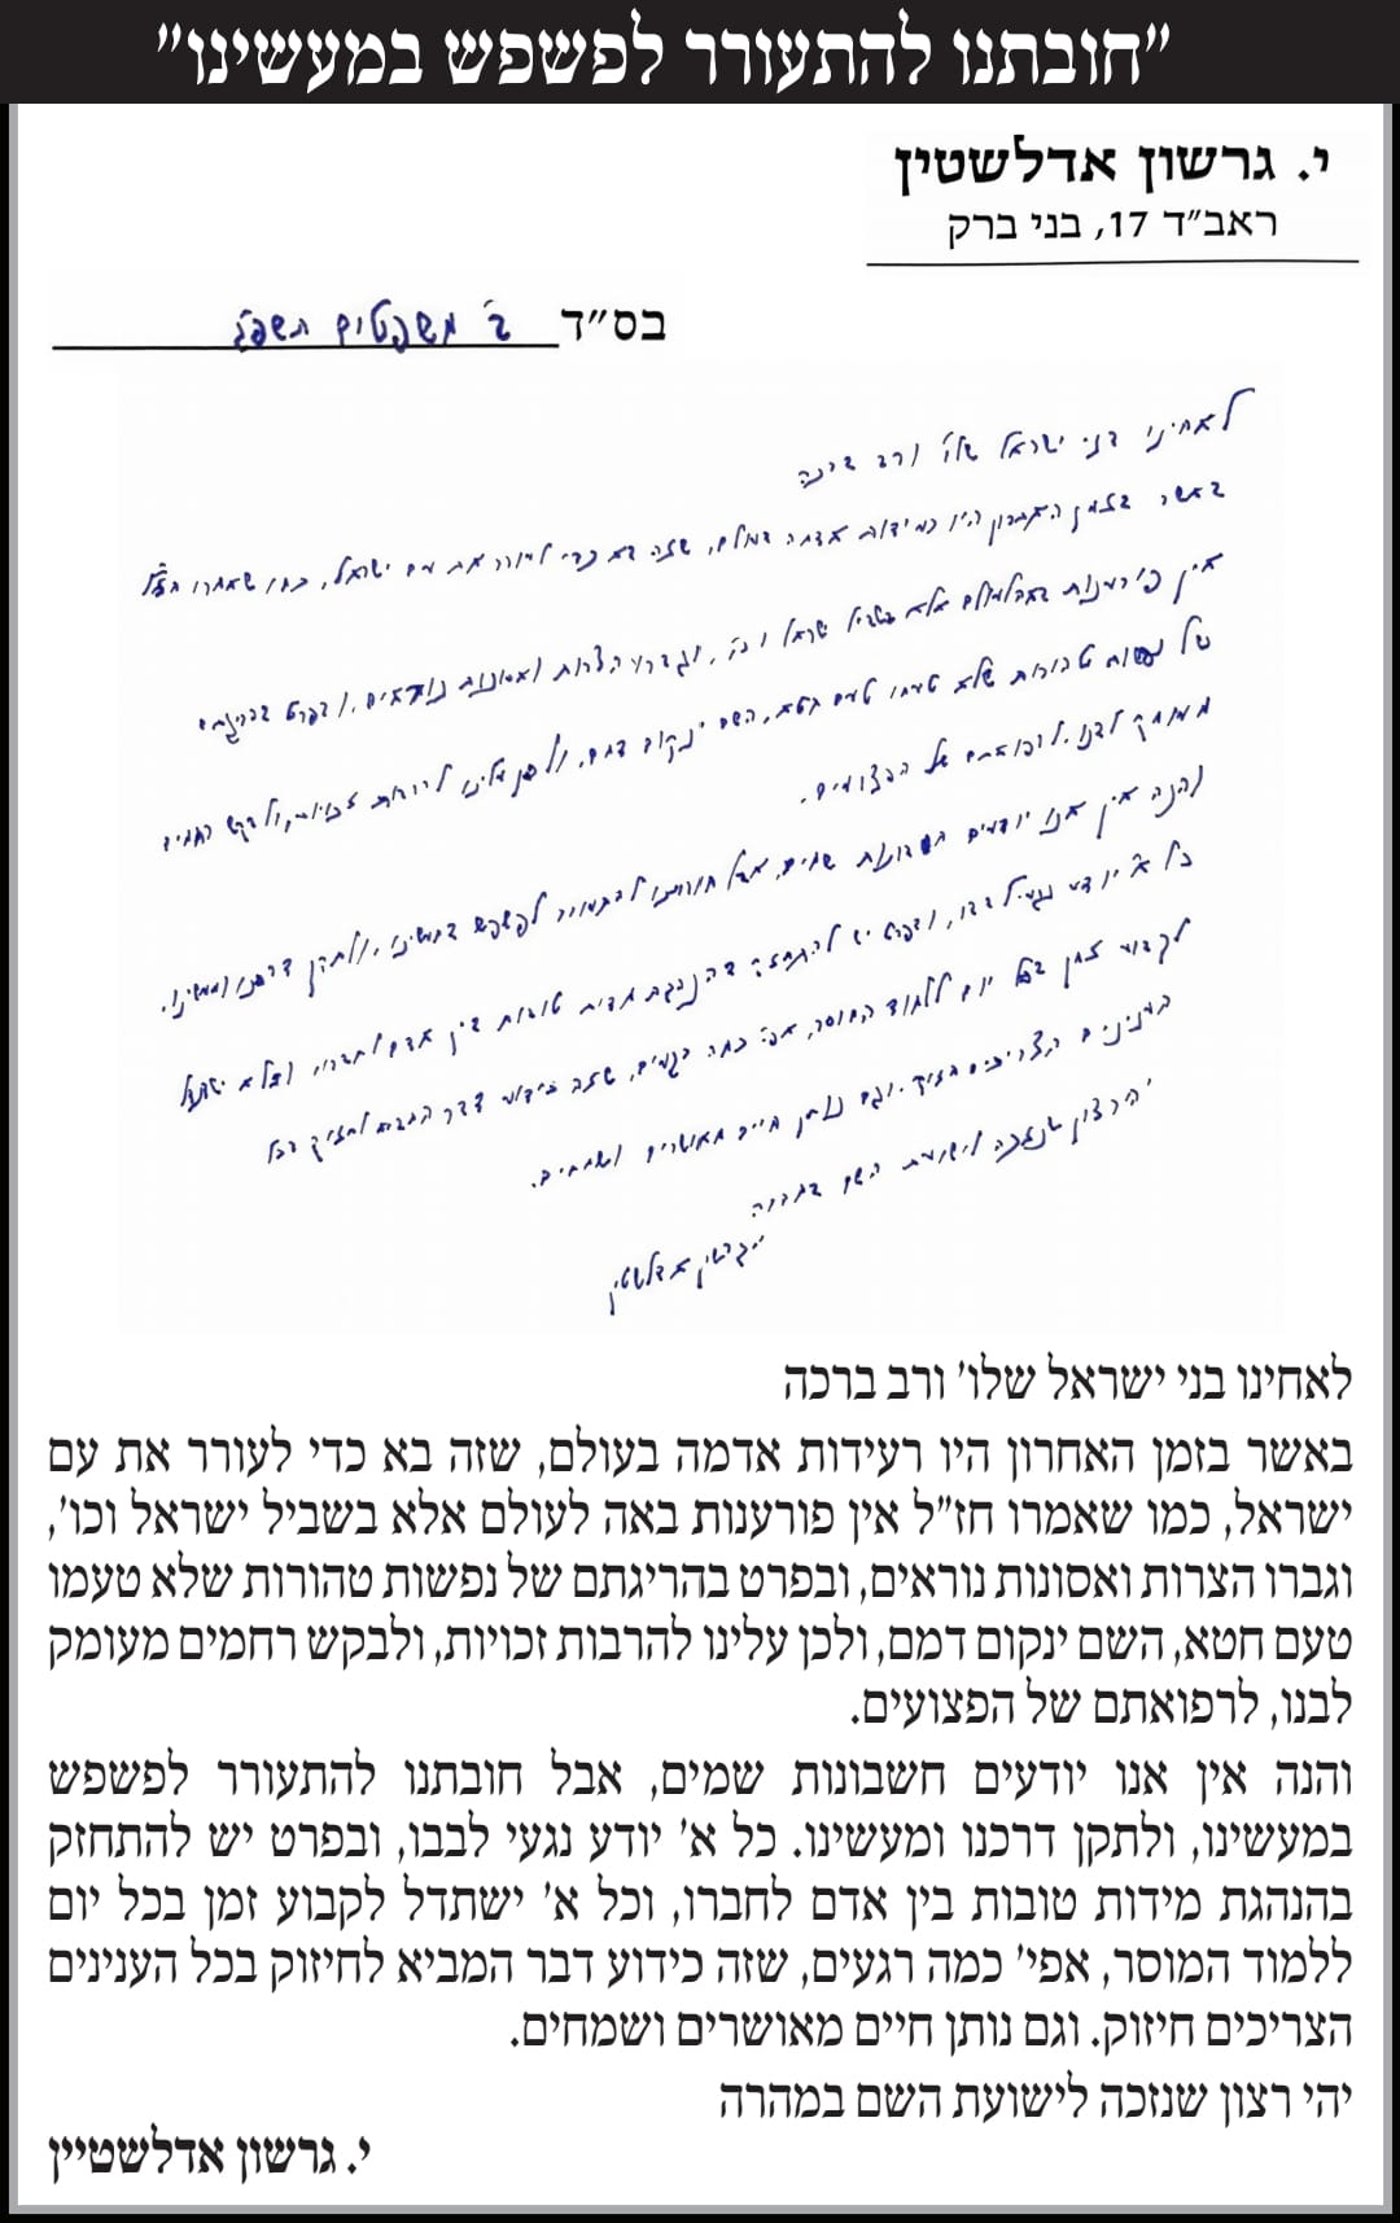 "חובתנו להתעורר לפשפש במעשינו"
י. גרשון אדלשטין
ראב"ד 17, בני ברק
בס"ד ב' משפטים תשפ"ג
לאחינו בני ישראל שלו' ורב ברכה
באשר בזמן האחרון היו רעידות אדמה בעולם, שזה בא כדי לעורר את עם ישראל, כמו שאמרו חז"ל
אין פורענות באה לעולם אלא בשביל ישראל וכו', וגברו הצרות ואסונות נוראים, ובפרט בהריגתם
של נפשות טהורות שלא טעמו טעם חטא, השם ינקום דמם, ולכן עלינו להרבות זכויות, ולבקש רחמים
מעומק לבנו, לרפואתם של הפצועים.
והנה אין אנו יודעים חשבונות שמים, אבל חובתנו להתעורר לפשפש במעשינו, ולתקן דרכנו ומעשינו.
כל א' יודע נגעי לבבו, ובפרט יש להתחזק בהנהגת מידות טובות בין אדם לחברו, וכל א' ישתדל
לקבוע זמן בכל יום ללמוד המוסר, אפי' כמה רגעים, שזה כידוע דבר המביא לחיזוק בכל
הענינים הצריכים חיזוק. וגם נותן חיים מאושרים ושמחים.
יהי רצון שנזכה לישועת השם במהרה
י. גרשון אדלשטין
לאחינו בני ישראל שלו' ורב ברכה
באשר בזמן האחרון היו רעידות אדמה בעולם, שזה בא כדי לעורר את עם
ישראל, כמו שאמרו חז"ל אין פורענות באה לעולם אלא בשביל ישראל וכו',
וגברו הצרות ואסונות נוראים, ובפרט בהריגתם של נפשות טהורות שלא טעמו
טעם חטא, השם ינקום דמם, ולכן עלינו להרבות זכויות, ולבקש רחמים מעומק
לבנו, לרפואתם של הפצועים.
והנה אין אנו יודעים חשבונות שמים, אבל חובתנו להתעורר לפשפש
במעשינו, ולתקן דרכנו ומעשינו. כל א' יודע נגעי לבבו, ובפרט יש להתחזק
בהנהגת מידות טובות בין אדם לחברו, וכל א' ישתדל לקבוע זמן בכל יום
ללמוד המוסר, אפי' כמה רגעים, שזה כידוע דבר המביא לחיזוק בכל הענינים
הצריכים חיזוק. וגם נותן חיים מאושרים ושמחים.
יהי רצון שנזכה לישועת השם במהרה
י. גרשון אדלשטיין